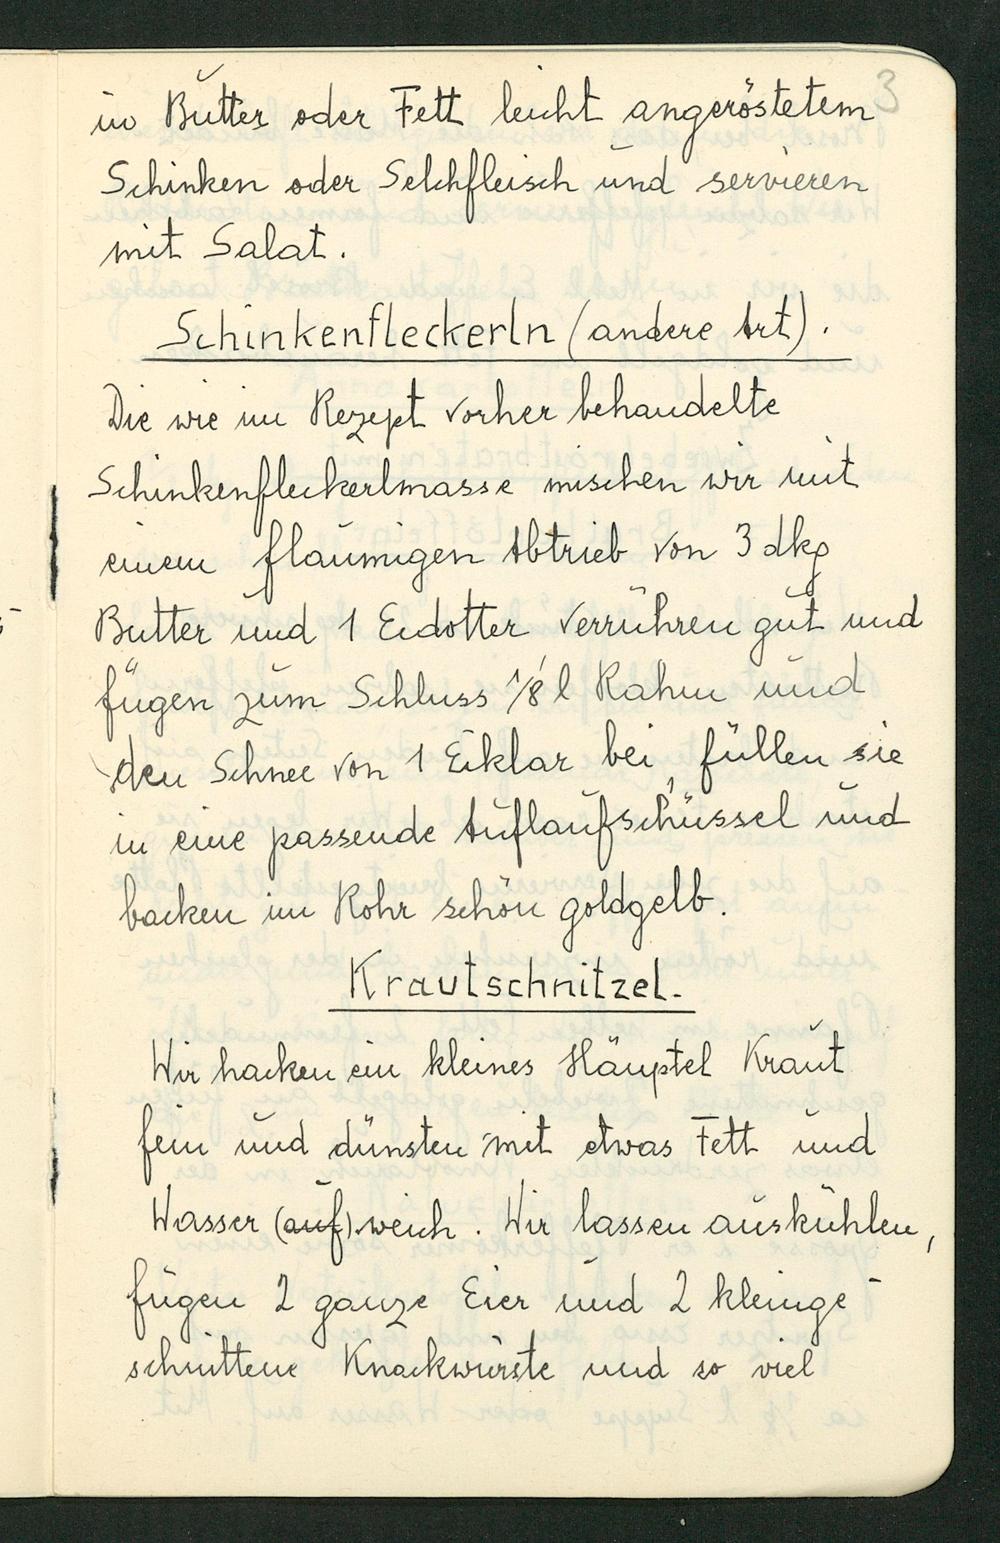 3
in Butter oder Fett leicht angeröstetem
Schinken oder Selchfleisch und servieren
mit Salat.
Schinkenfleckerln (andere Art).
Die wie im Rezept vorher behandelte
Schinkenfleckerlmasse mischen wir mit
einem flaumigen Abtrieb von 3 dkg
Butter und 1 Eidotter verrühren gut und
fügen zum Schluss 1/8 l Rahm und
den Schnee von 1 Eiklar bei, füllen sie
in eine passende Auflaufschüssel und
backen im Rohr schön goldgelb.
Krautschnitzel.
Wir hacken ein kleines Häuptel Kraut
fein und dünsten mit etwas Fett und
Wasser (auf) weich. Wir lassen auskühlen,
fügen 2 ganze Eier und 2 kleinge-
schnittene Knackwürste und so viel